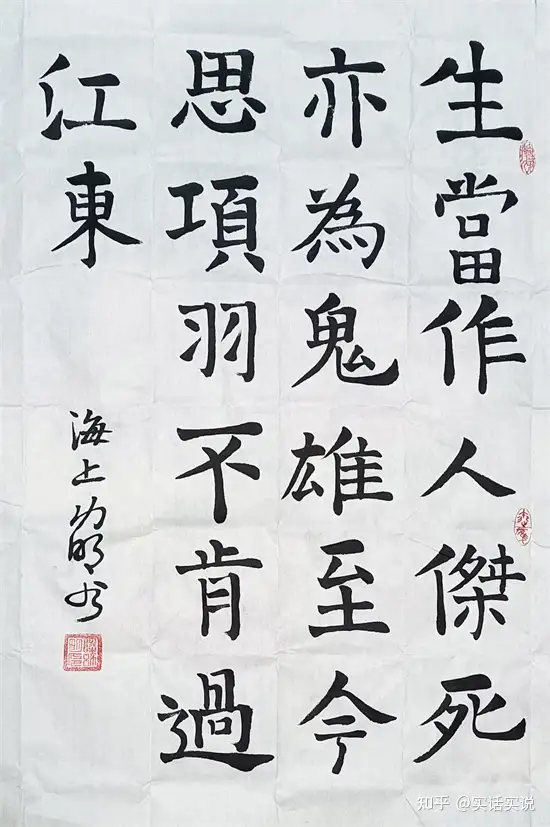 生當作人傑死
亦為鬼雄至今
思項羽不肯過
江東
海上
明书
知乎 @实话实说